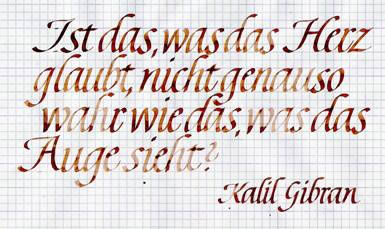 Ist das, was das Herz
glaubt, nicht genauso
wahr wie das, was das
Auge sieht?
Kalil Gibran